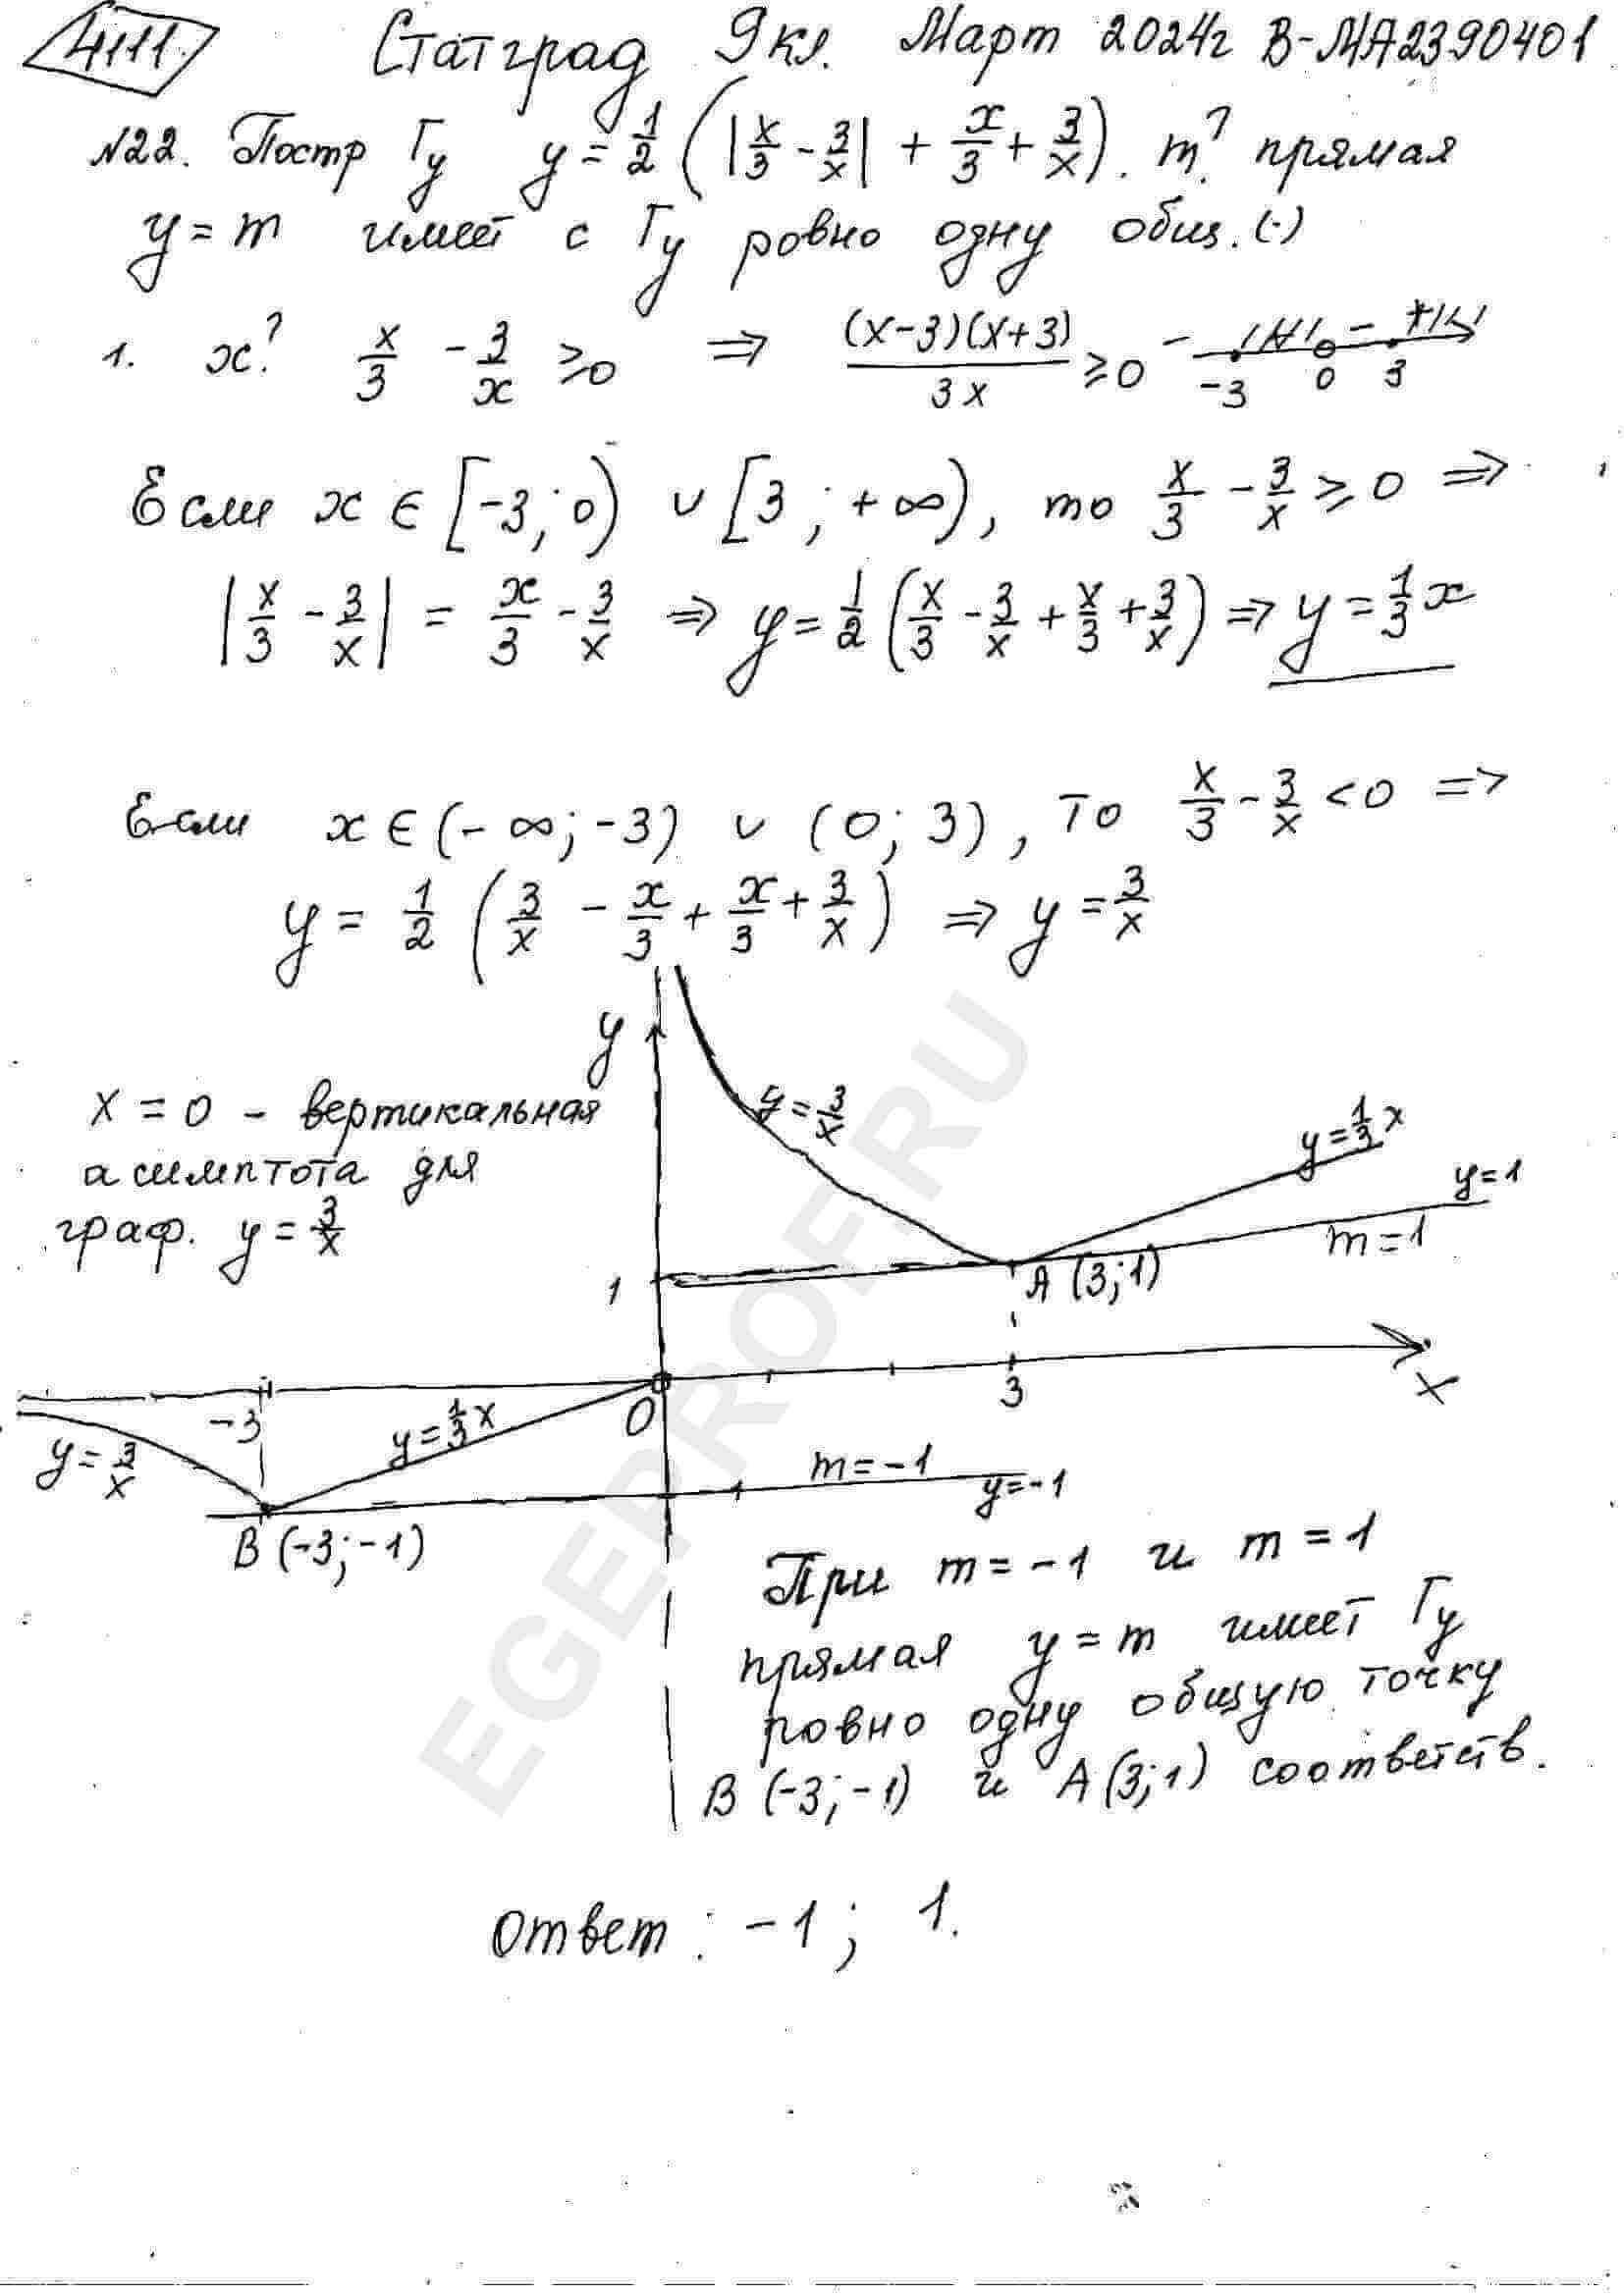 4111. Статград 9кл. Март 2024г В-МА2390401
№22. Постр Гу y = 1/2 (|x/3 - 3/x| + x/3 + 3/x). m? прямая
y = m имеет с Гу ровно одну общ. (·)
1. x? x/3 - 3/x ⩾ 0 ⇒ (x-3)(x+3)/3x ⩾ 0 - + - + -3 0 3
Если x ∈ [-3; 0) ∪ [3; +∞), то x/3 - 3/x ⩾ 0 ⇒
|x/3 - 3/x| = x/3 - 3/x ⇒ y = 1/2 (x/3 - 3/x + x/3 + 3/x) ⇒ y = 1/3 x
Если x ∈ (-∞; -3) ∪ (0; 3), то x/3 - 3/x < 0 ⇒
y = 1/2 (3/x - x/3 + x/3 + 3/x) ⇒ y = 3/x
y
x = 0 - вертикальная
асимптота для
граф. y = 3/x
y = 3/x
y = 1/3 x
y = 1
m = 1
1
A (3; 1)
-3
O
3
x
y = 3/x
y = 1/3 x
m = -1
y = -1
B (-3; -1)
При m = -1 и m = 1
прямая y = m имеет Гу
ровно одну общую точку
B (-3; -1) и A (3; 1) соответств.
Ответ: -1; 1.
EGEPROF.RU